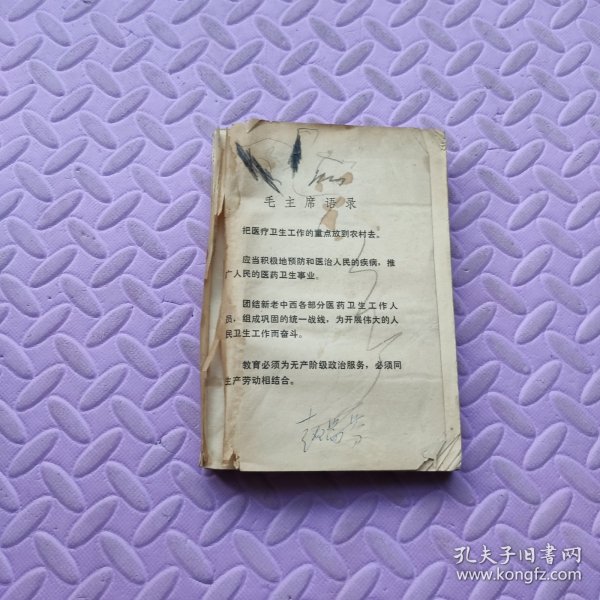 毛主席语录
把医疗卫生工作的重点放到农村去。
应当积极地预防和医治人民的疾病，推
广人民的医药卫生事业。
团结新老中西各部分医药卫生工作人
员，组成巩固的统一战线，为开展伟大的人
民卫生工作而奋斗。
教育必须为无产阶级政治服务，必须同
生产劳动相结合。
孔夫子旧书网
www.kongfz.com